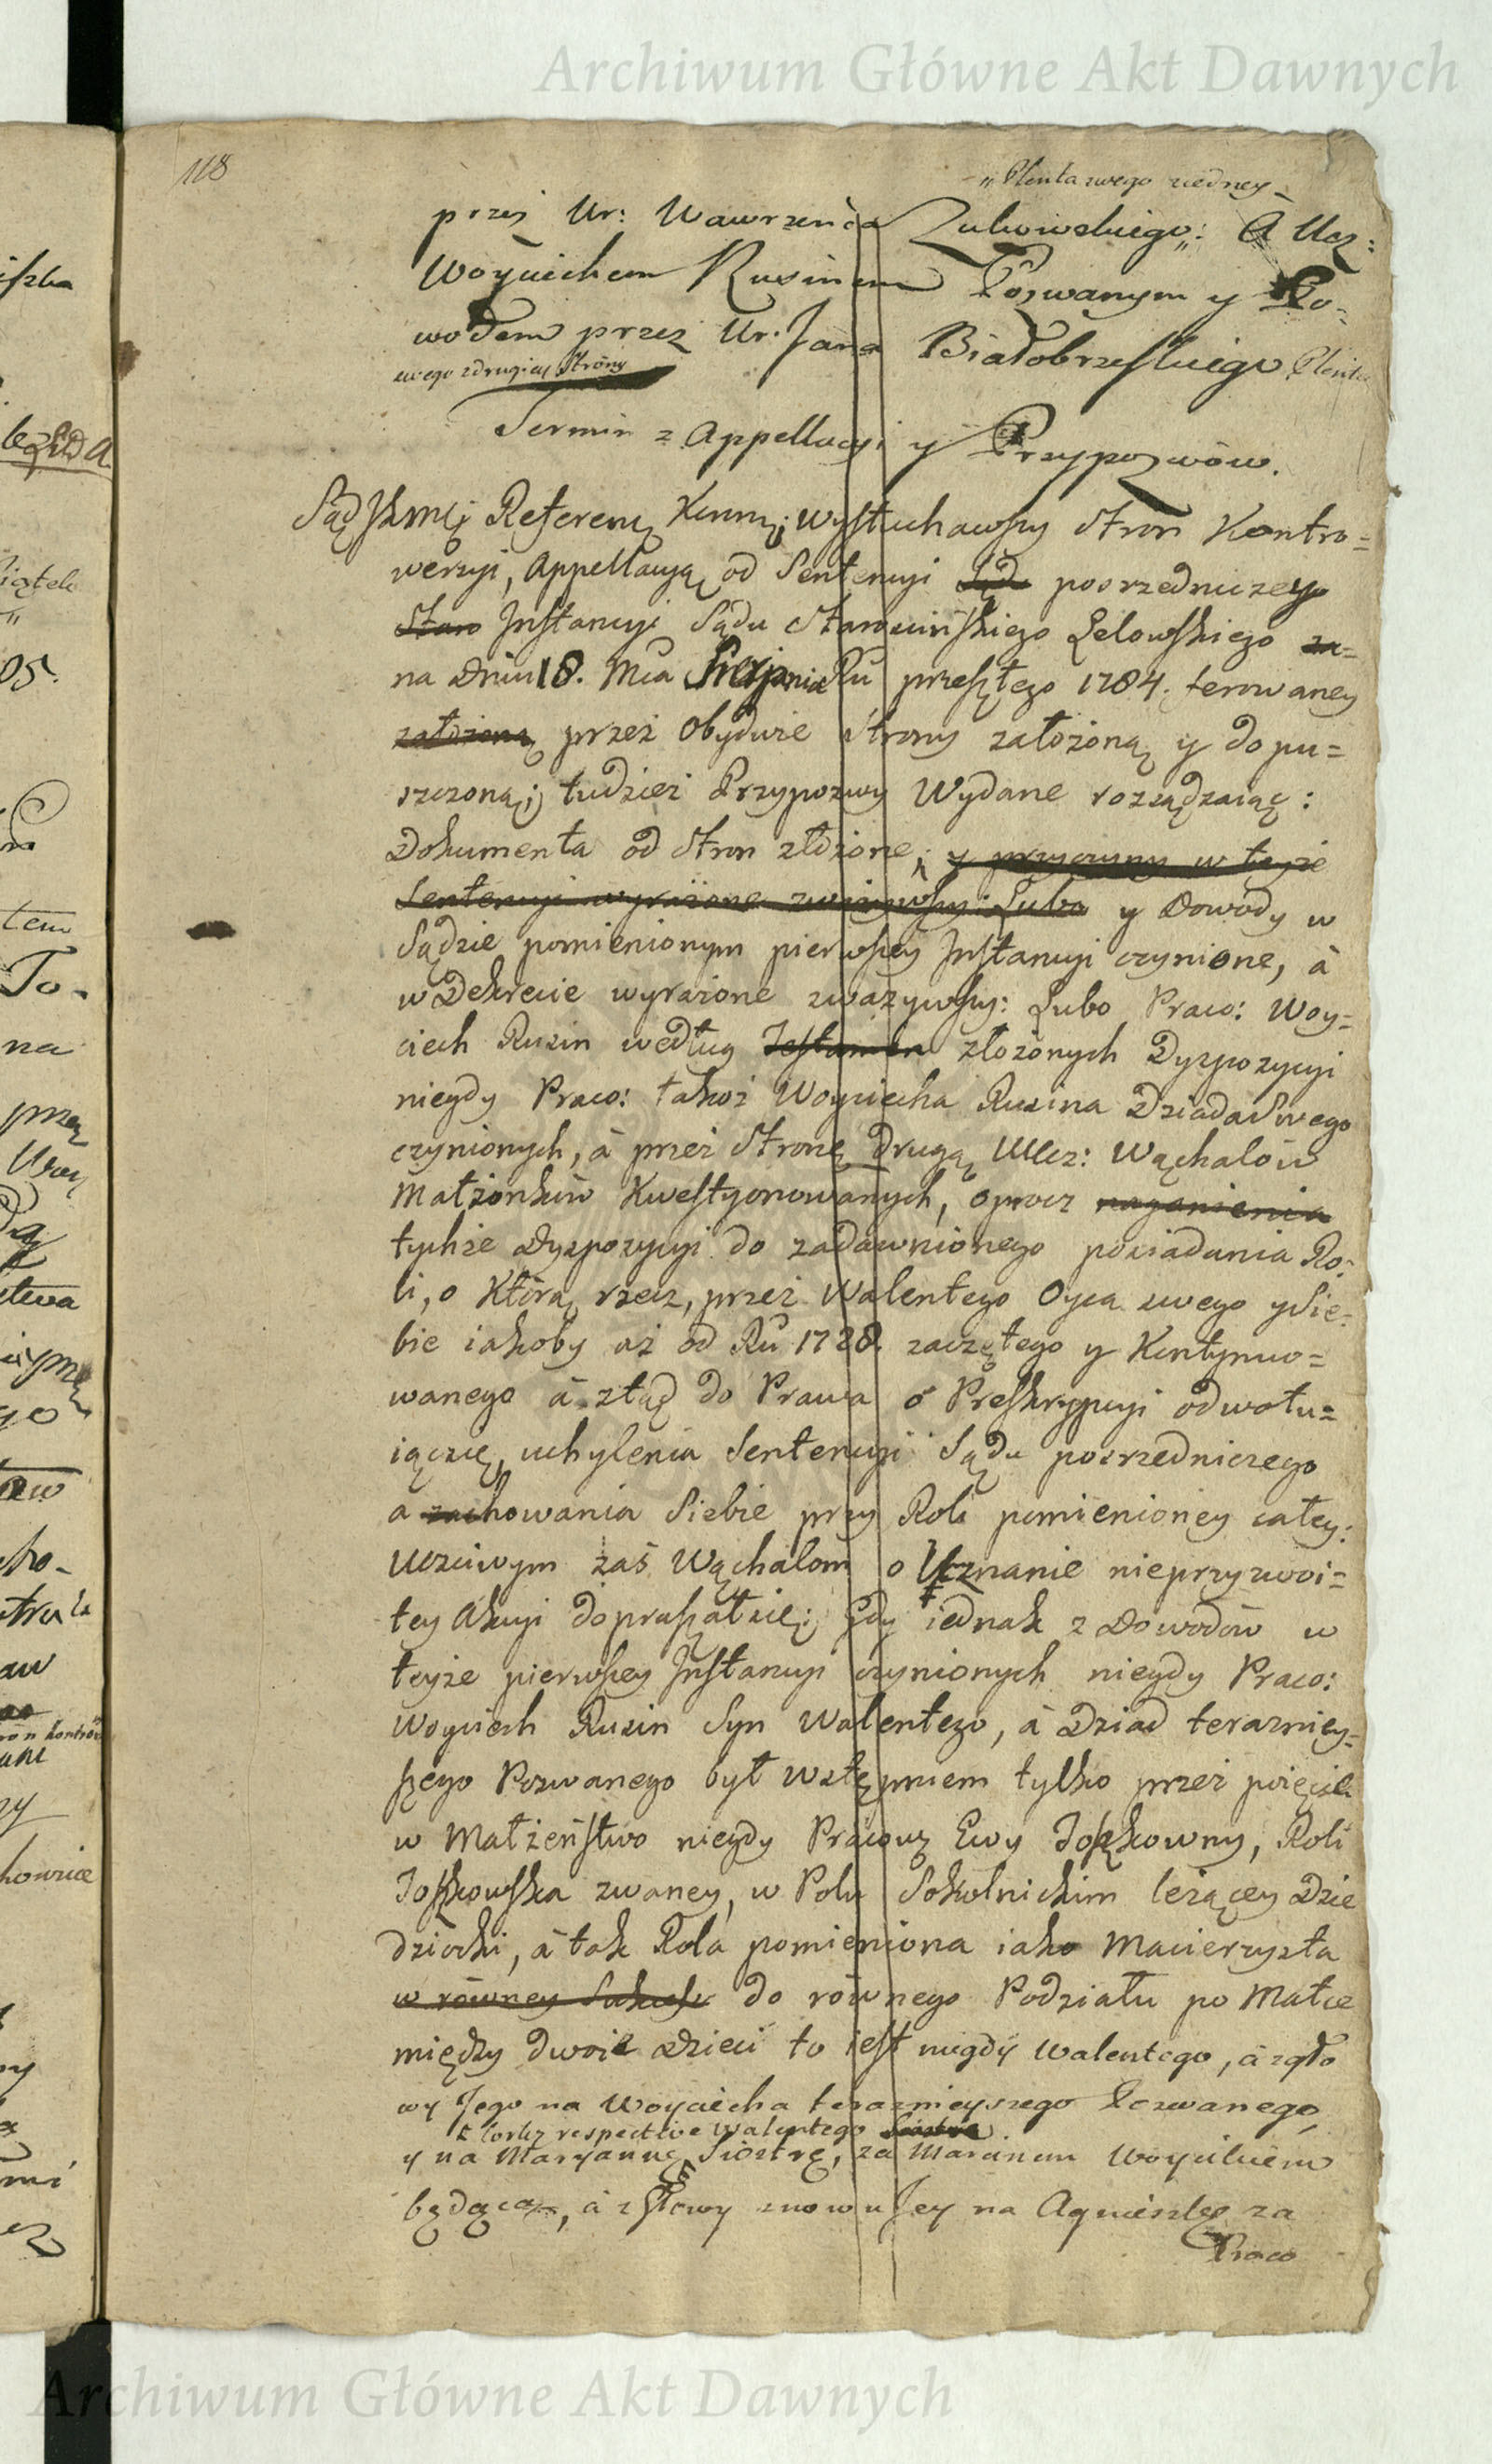 Archiwum Główne Akt Dawnych
118
"Plenta swego z iedney
przez Ur: Wawrzeńca Zukowskiego": à Ucz:
Woyciechem Rusinem Pozwanym y Po-
wodem przez Ur: Jana Białobrzeskiego Plenta
swego z drugiey Strony
Termin z Appellacyi y Przypozwów.
Sąd JKMci Referen: Koron: wysłuchawszy Stron Kontro=
wersyi, Appellacyą od Sentencyi Sądu posrzedniczego
Staro Instancyi Sądu Starościńskiego Lelowskiego za=
na Dniu 18. Mca Sierpnia Ru przeszłego 1784. ferowaney
założoną przez Obydwie Strony założoną y dopu=
szczoną; tudzież Przypozwy Wydane rozsądzaiąc:
Dokumenta od Stron złożone, y przyczyny w teyże
Sentencyi wyrażone zważywszy: Lubo y Dowody w
Sądzie pomienionym pierwszey Instancyi czynione, à
w Dekrecie wyrażone zważywszy: Lubo Praco: Woy=
ciech Rusin według Testamen złożonych Dyspozycyi
niegdy Praco: takoż Woyciecha Rusina Dziada Swego
czynionych, à przez Stronę drugą Ucz: Wąchalów
Małżonków Kwestyonowanych, oprocz naganienia
tychże Dyspozycyi do zadawnionego posiadania Ro=
li, o Którą rzecz, przez Walentego Oyca swego y Sie=
bie iakoby aż od Ru 1728. zaczętego y Kontynuo=
wanego à ztąd do Prawa o Preskrypcyi odwołu=
iącsię, uchylenia Sentencyi Sądu posrzedniczego
a zachowania Siebie przy Roli pomienioney całey:
Uczciwym zaś Wąchalom o Uznanie nieprzyzwoi=
tey Akcyi dopraszał się; Gdy iednak z Dowodów w
teyże pierwszey Instancyi czynionych niegdy Praco:
Woyciech Rusin Syn Walentego, à Dziad terazniey=
szego Pozwanego był wstępniem tylko przez poięcie
w Małżeństwo niegdy Pracowę Ewy Joszkowny, Roli
Joszkowska zwaney, w Polu Sokolnickim leżącey Dzie
dziczki, à tak Rola pomieniona iako Macierzysta
w równey do równego Podziału po Matce
między dwoie Dzieci to iest niegdy Walentego, à z gło
wy Jego na Woyciecha teraznieyszego Pozwanego,
z Corkę respective Walentego Siostrę
y na Maryannę Siostrę, za Marcinem Woycikiem
będącą, à z Głowy znowu Jey na Agnieszkę za
Praco
Archiwum Główne Akt Dawnych